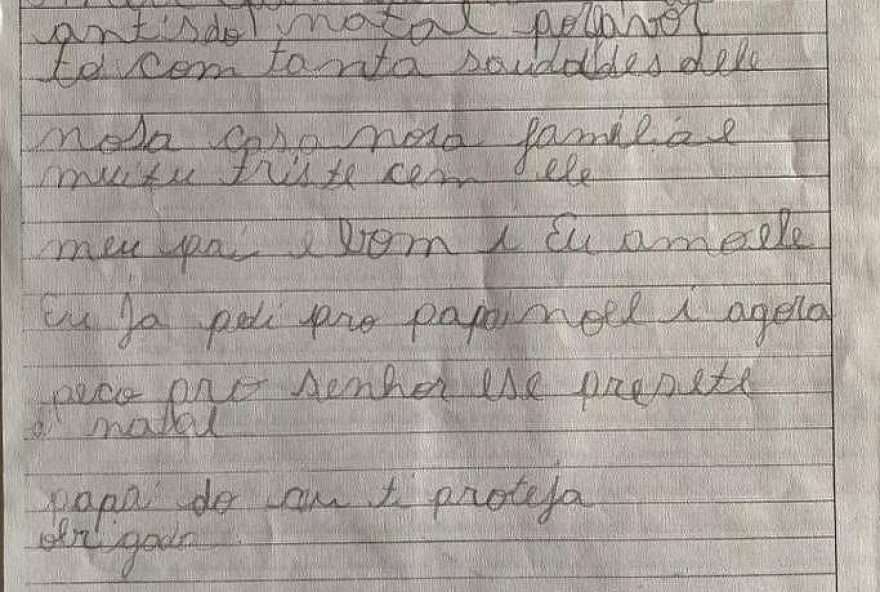 antisdo natal porfavor
to com tanta saudaldes dele
nosa casa nosa familia e
muitu triste cem ele
meu pai e bom i Eu amo ele
Eu ja pedi pro papai noel i agora
peço pro senhor ese presete
natal
papai do ceu ti proteja
obrigada